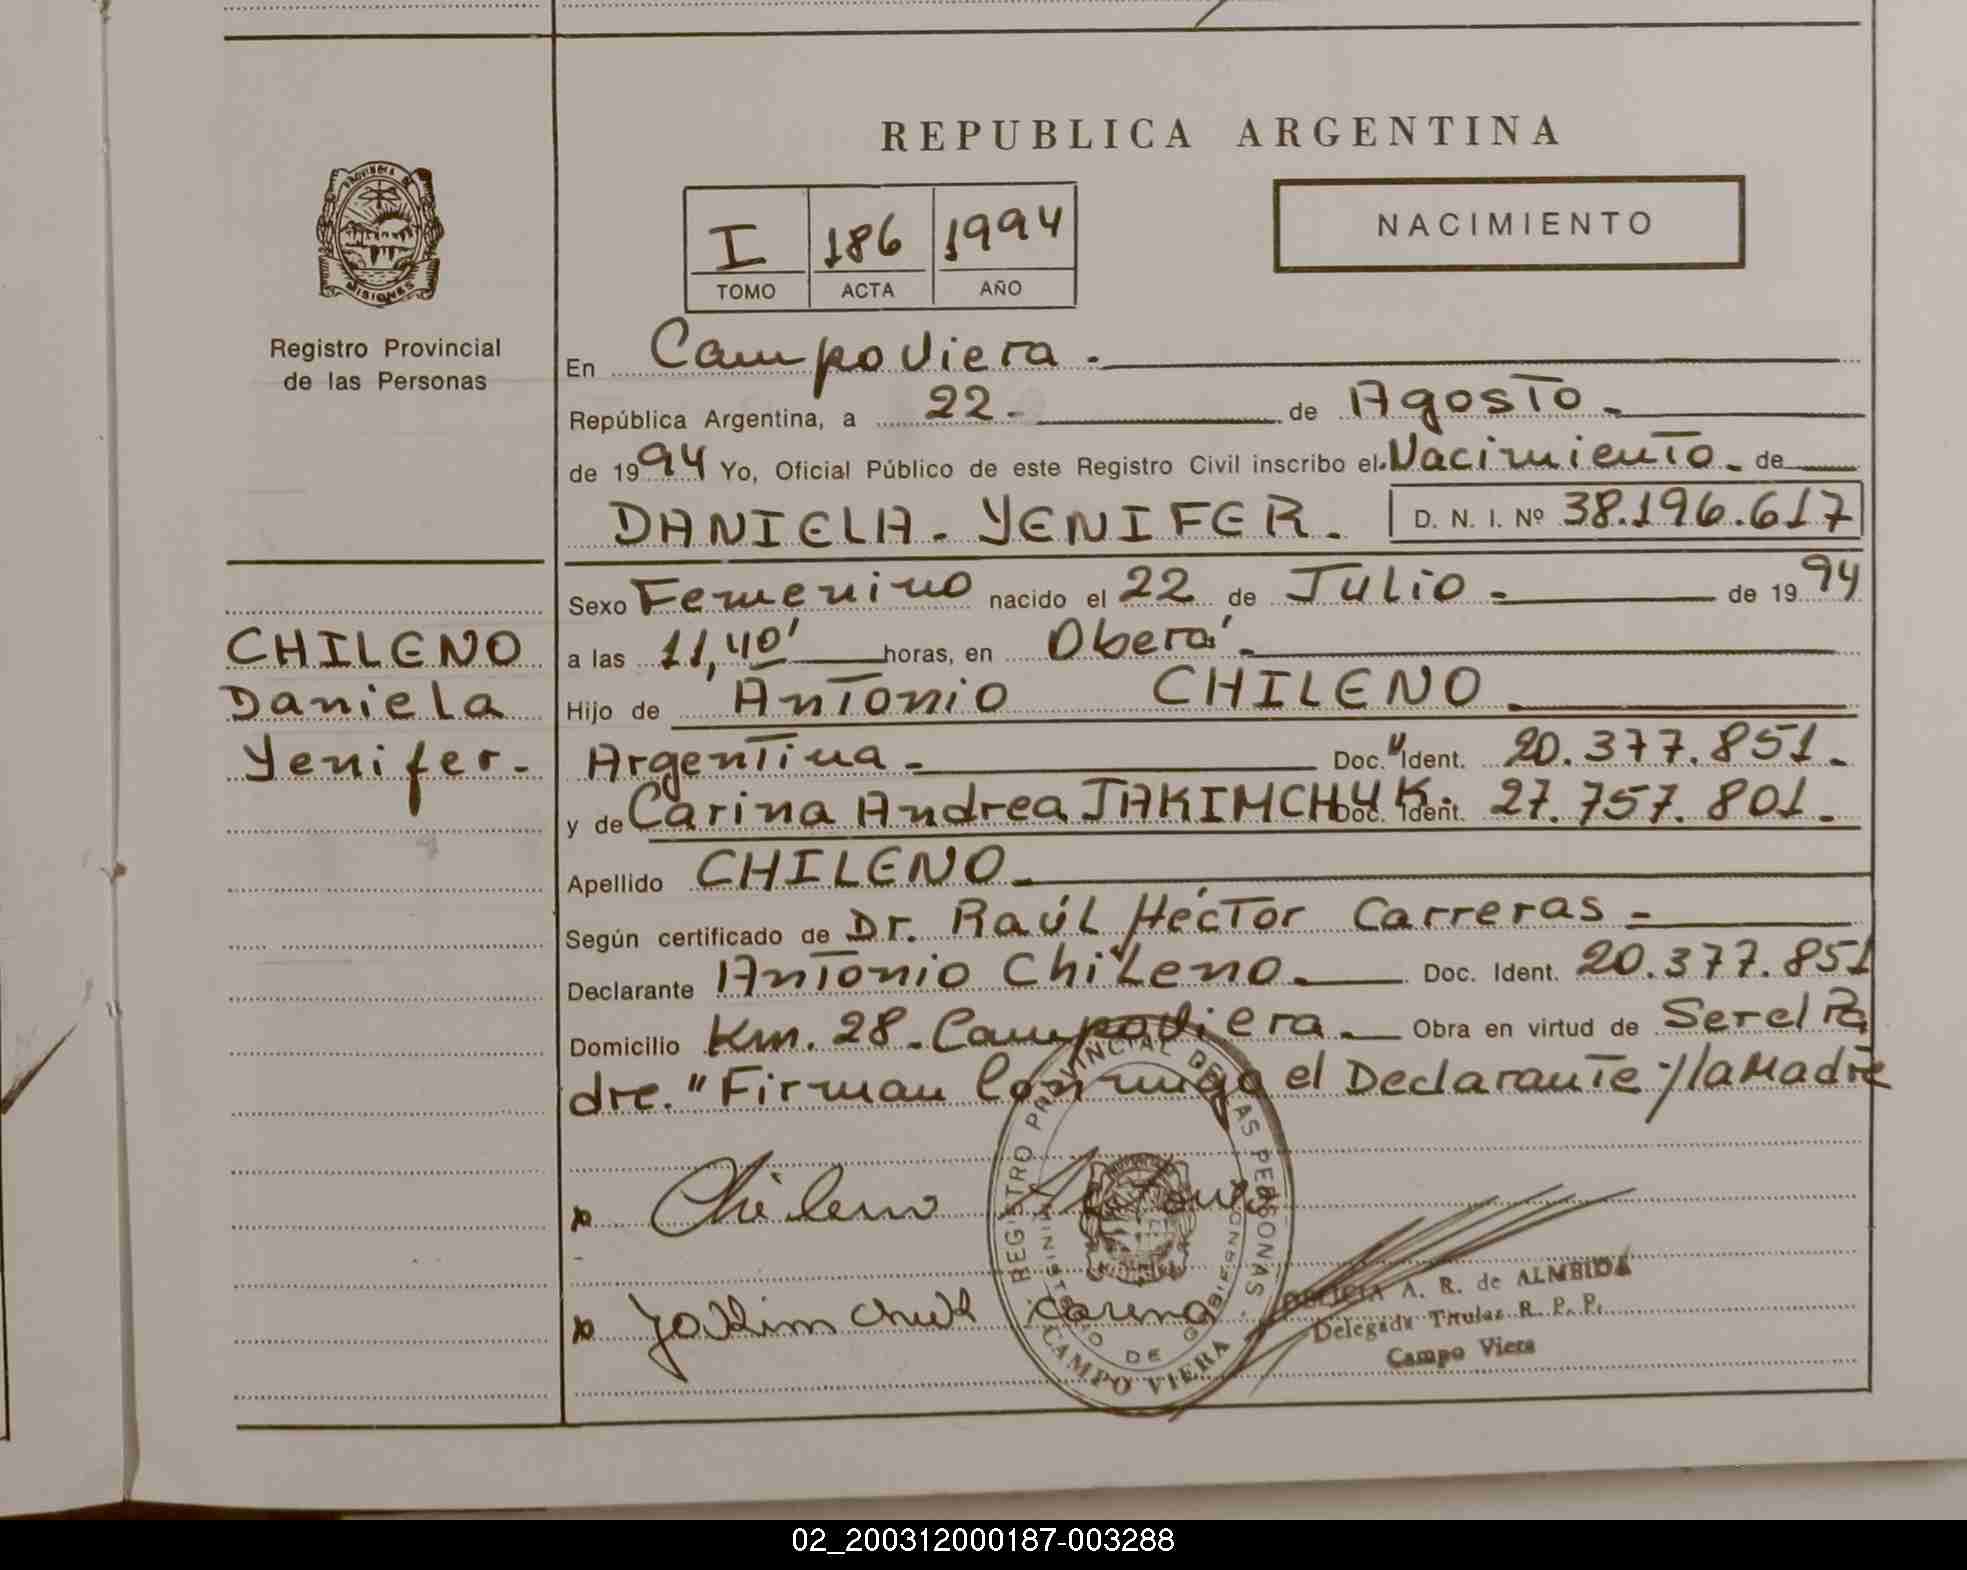 REPUBLICA ARGENTINA
PROVINCIA DE
MISIONES
Registro Provincial
de las Personas
I 186 1994
TOMO ACTA AÑO
NACIMIENTO
En Campo Viera.
República Argentina, a 22. de Agosto.
de 1994 Yo, Oficial Público de este Registro Civil inscribo el Nacimiento. de
DANIELA. YENIFER. D. N. I. Nº 38.196.617
Sexo Femenino nacido el 22 de Julio. de 1994
a las 11,40' horas, en Oberá.
Hijo de Antonio CHILENO
Argentina. Doc. Ident. 20.377.851.
y de Carina Andrea JAKIMCHUK. Doc. Ident. 27.757.801.
Apellido CHILENO.
Según certificado de Dr. Raúl Héctor Carreras
Declarante Antonio Chileno. Doc. Ident. 20.377.851
Domicilio Km. 28. Campo Viera. Obra en virtud de Ser el Pa
dre. "Firman Conmigo el Declarante y la Madre
CHILENO
Daniela
Yenifer.
Chileno
Carina
REGISTRO PROVINCIAL DE LAS PERSONAS
MINISTERIO DE GOBIERNO
CAMPO VIERA
A. R. de ALMEIDA
Delegada Titular R. P. P.
Campo Viera
02_200312000187-003288